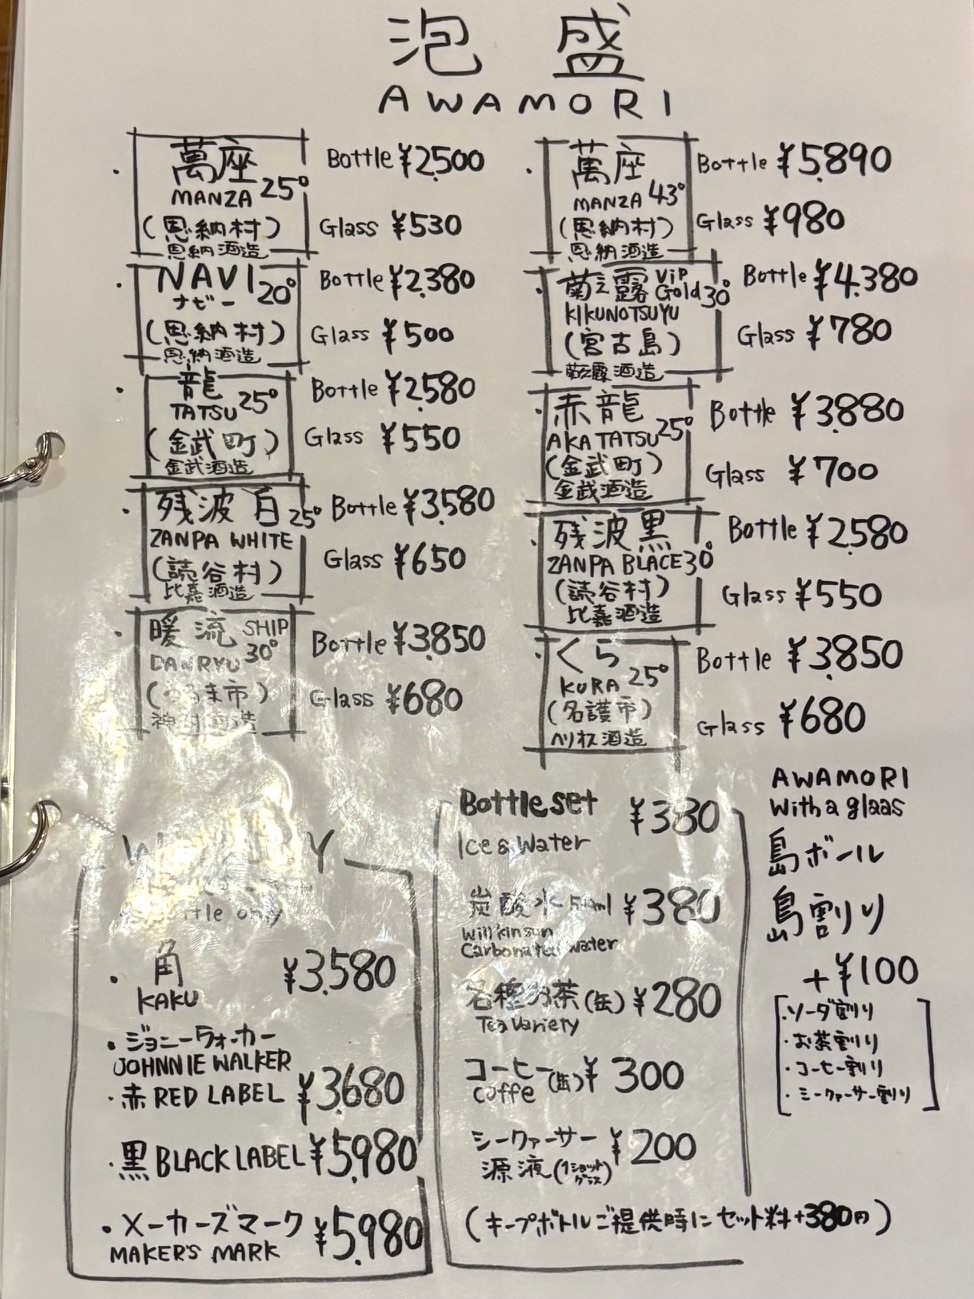 泡盛
AWAMORI
萬座 25°
MANZA
(恩納村)
恩納酒造
Bottle ¥2500
Glass ¥530
NAVI 20°
ナビー
(恩納村)
恩納酒造
Bottle ¥2,380
Glass ¥500
龍
TATSU 25°
(金武町)
金武酒造
Bottle ¥2580
Glass ¥550
残波 白 25°
ZANPA WHITE
(読谷村)
比嘉酒造
Bottle ¥3,580
Glass ¥650
暖流 SHIP
DANRYU 30°
(うるま市)
神村酒造
Bottle ¥3,850
Glass ¥680
萬座
MANZA 43°
(恩納村)
恩納酒造
Bottle ¥5,890
Glass ¥980
菊之露 ViP Gold 30°
KIKUNOTSUYU
(宮古島)
菊之露酒造
Bottle ¥4,380
Glass ¥780
赤龍
AKATATSU 25°
(金武町)
金武酒造
Bottle ¥3,880
Glass ¥700
残波黒
ZANPA BLACE 30°
(読谷村)
比嘉酒造
Bottle ¥2,580
Glass ¥550
くら
KURA 25°
(名護市)
ヘリオス酒造
Bottle ¥3,850
Glass ¥680
only
・角 ¥3,580
KAKU
・ジョニーウォーカー
JOHNNIE WALKER
・赤 RED LABEL ¥3,680
・黒 BLACK LABEL ¥5,980
・メーカーズマーク ¥5,980
MAKER'S MARK
Bottle set ¥380
Ice & Water
炭酸水 ¥380
Wilkinson
Carbonated water
各種お茶(缶) ¥280
Tea Variety
コーヒー(缶) ¥300
Coffe
シークァーサー ¥200
源液(1ショットグラス)
(キープボトルご提供時にセット料+380円)
AWAMORI
With a glaas
島ボール
島割り
+¥100
・ソーダ割り
・お茶割り
・コーヒー割り
・シークァーサー割り